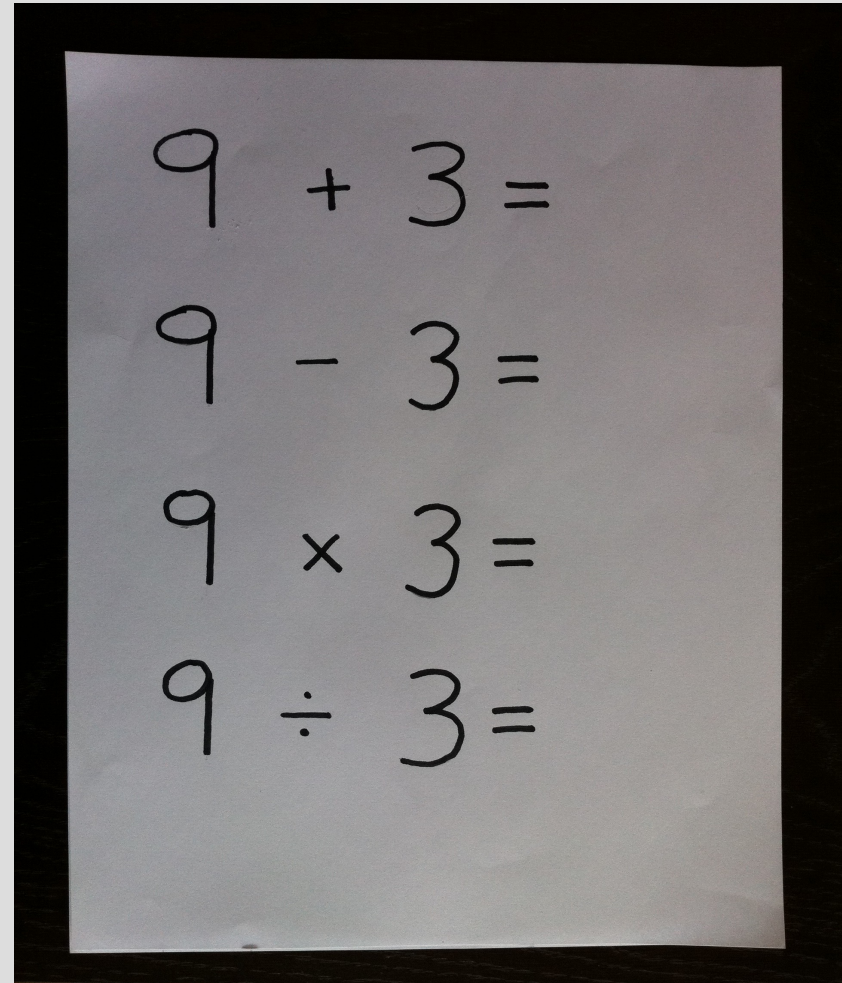 9 + 3 =
9 - 3 =
9 × 3 =
9 ÷ 3 =